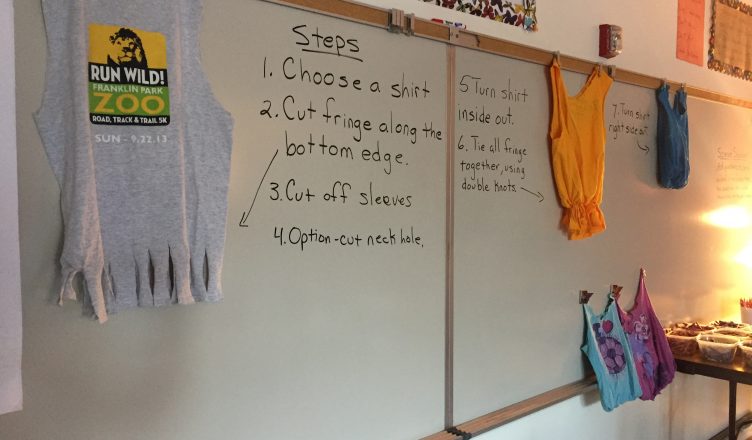 RUN WILD!
FRANKLIN PARK
ZOO
ROAD, TRACK & TRAIL 5K
SUN - 9.22.13
Steps
1. Choose a shirt
2. Cut fringe along the
bottom edge.
3. Cut off sleeves
4. Option-cut neck hole.
5 Turn shirt
inside out.
6. Tie all fringe
together, using
double knots.
7. Turn shirt
right side out.